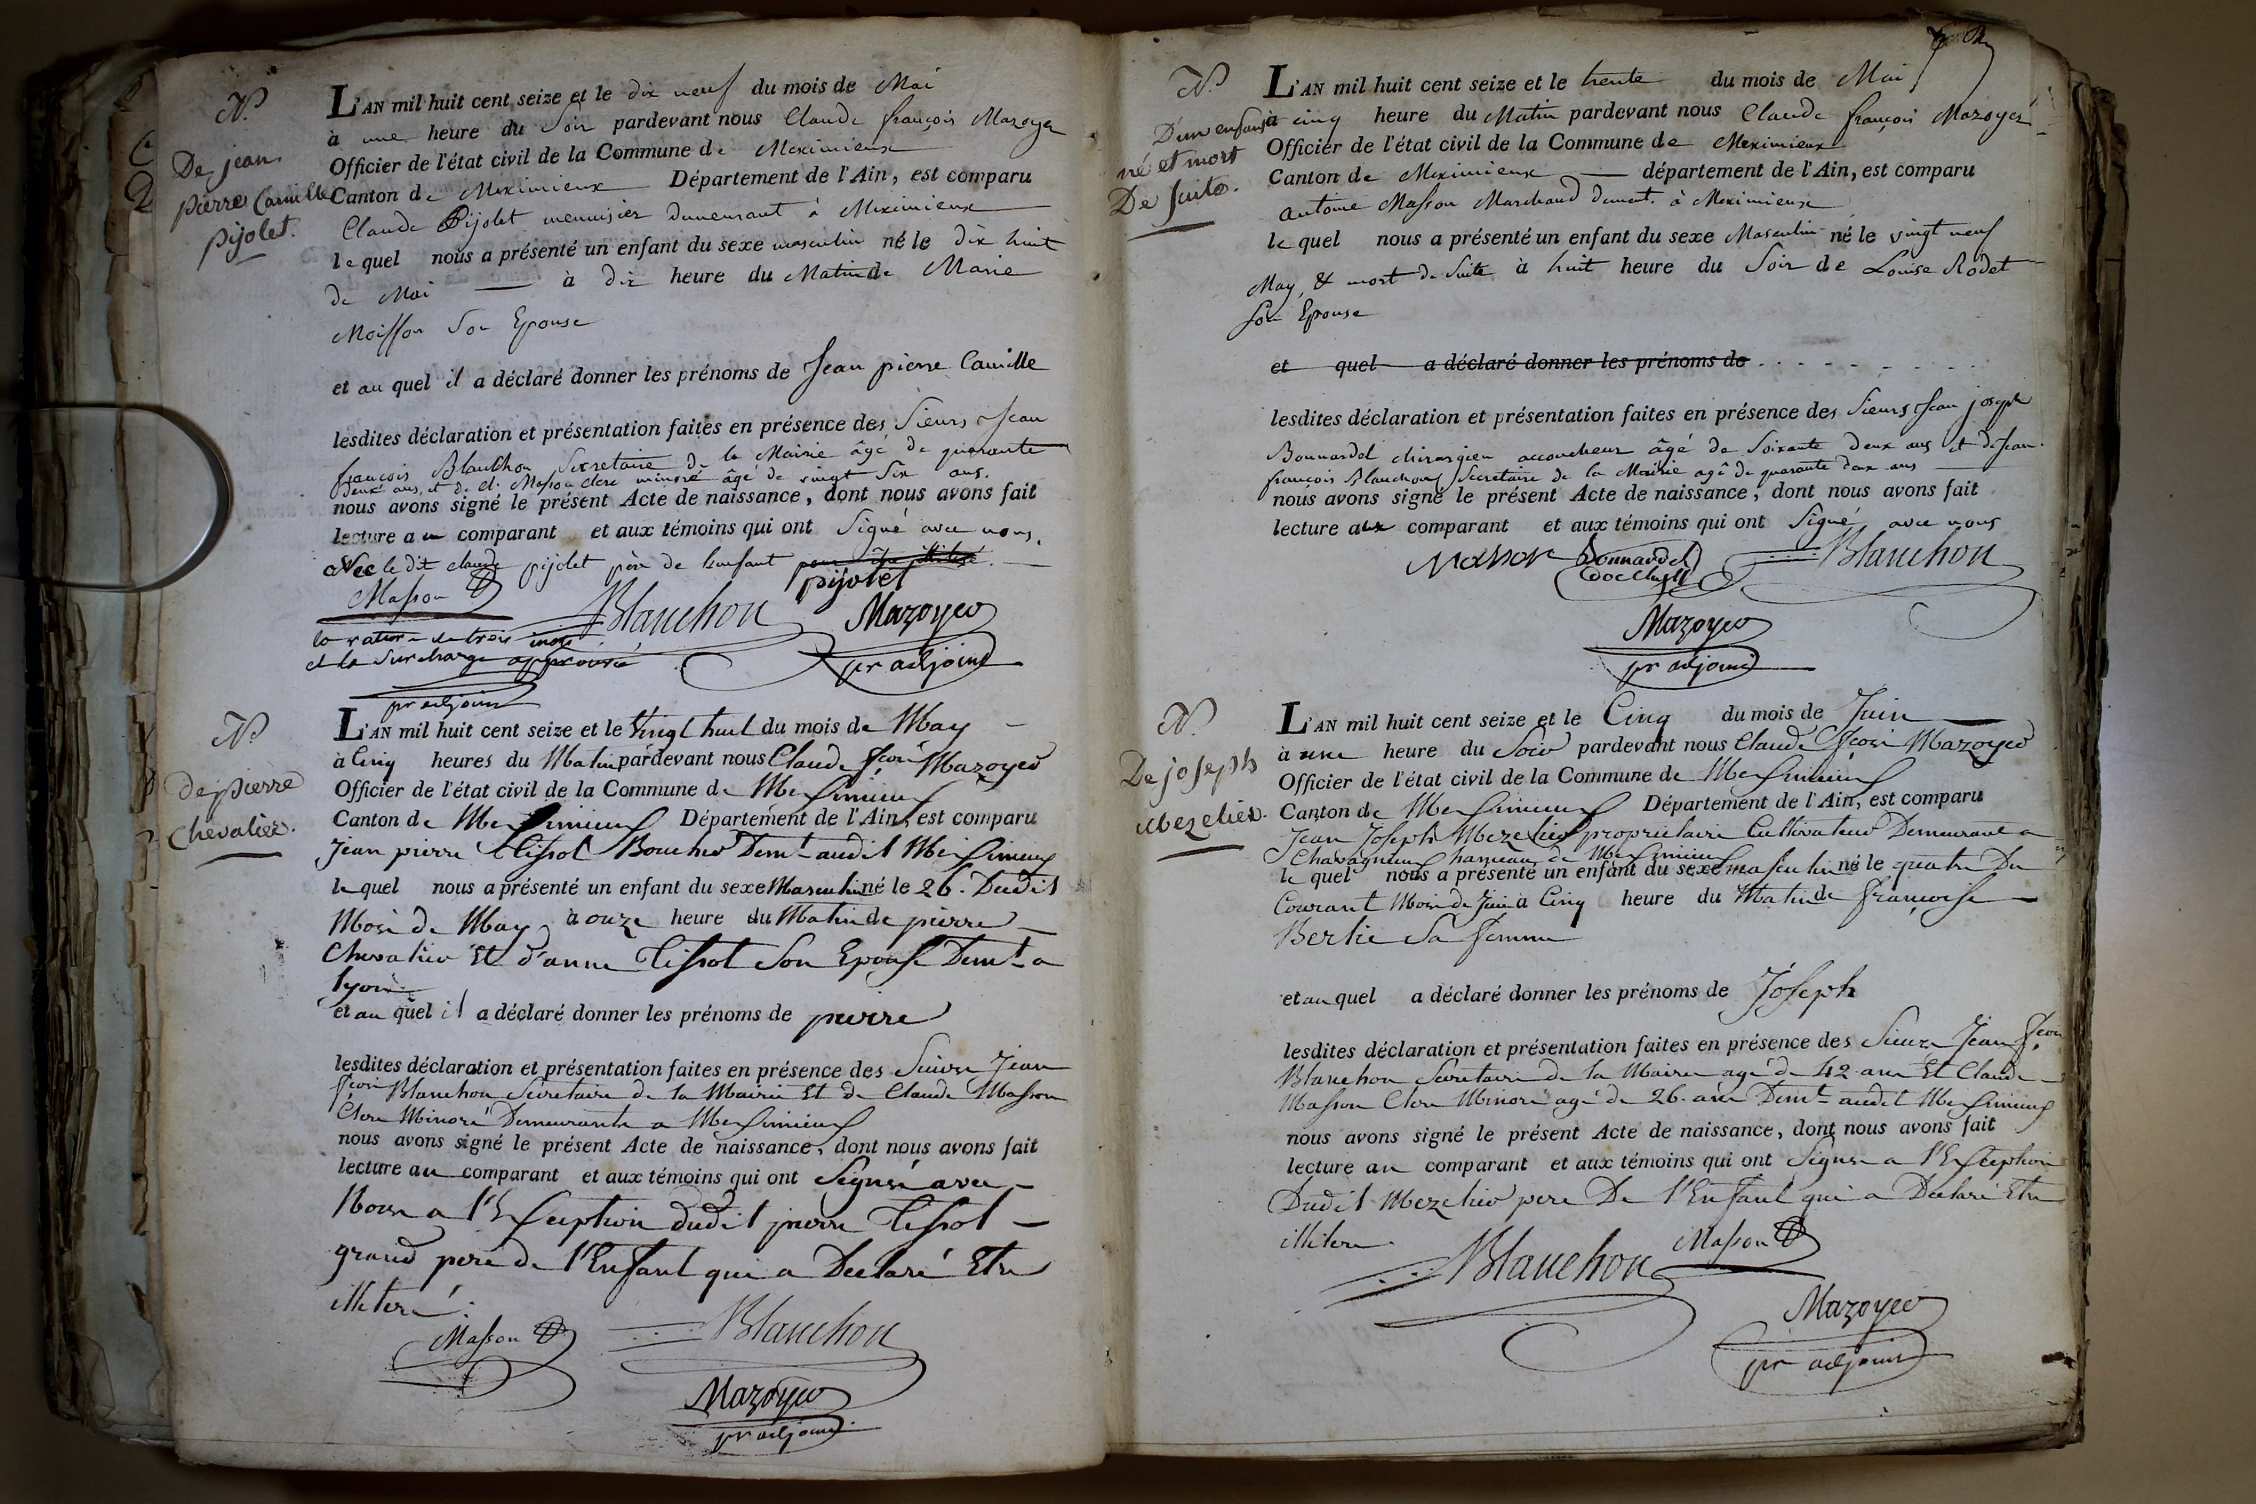 N.º
De jean
pierre Camille
pijolet.
L'AN mil huit cent seize et le dix neuf du mois de Mai
à une heure du Soir pardevant nous Claude françois Mazoyer
Officier de l'état civil de la Commune de Meximieux
Canton de Meximieux Département de l'Ain, est comparu
Claude Pijolet menuisier demeurant à Meximieux
le quel nous a présenté un enfant du sexe masculin né le dix huit
de Mai à dix heure du Matin de Marie
Moisson Son Epouse
et au quel il a déclaré donner les prénoms de Jean pierre Camille
lesdites déclaration et présentation faites en présence des Sieurs Jean
françois Blanchon Secretaire de la Mairie âgé de quarante
deux ans, et de cl. Masson clerc minoré âgé de vingt Six ans.
nous avons signé le présent Acte de naissance, dont nous avons fait
lecture au comparant et aux témoins qui ont Signé avec nous.
avec le dit claude pijolet père de lenfant
pijolet
Masson
Blanchon
Mazoyer
la rature de trois mots
et la Surcharge approuvé
pr adjoint
pr adjoint
N.º
de pierre
Chevalier.
L'AN mil huit cent seize et le Vingt huit du mois de May
à Cinq heures du Matin pardevant nous Claude fcois Mazoyer
Officier de l'état civil de la Commune de Meximieux
Canton de Meximieux Département de l'Ain, est comparu
Jean pierre tissot Boucher Demt audit Meximieux
le quel nous a présenté un enfant du sexe Masculin né le 26. Dudit
Mois de May à onze heure du Matin de pierre
Chevalier Et d'anne tissot Son Epouse Demt a
lyon
et au quel il a déclaré donner les prénoms de pierre
lesdites déclaration et présentation faites en présence des Sieurs Jean
fcois Blanchon Secretaire de la Mairie Et de Claude Masson
Clerc Minoré Demeurants a Meximieux
nous avons signé le présent Acte de naissance, dont nous avons fait
lecture au comparant et aux témoins qui ont Signés avec
Nous a l'Exception dudit pierre tissot
grand pere de l'Enfant qui a Declaré Etre
illiteré.
Masson
Blanchon
Mazoyer
pr adjoint
N.º
D'un enfant
né et mort
De Suite.
L'AN mil huit cent seize et le trente du mois de Mai
à cinq heure du Matin pardevant nous Claude françois Mazoyer
Officier de l'état civil de la Commune de Meximieux
Canton de Meximieux département de l'Ain, est comparu
antoine Masson Marchand demt. à Meximieux
le quel nous a présenté un enfant du sexe Masculin né le vingt neuf
May, & mort de Suite à huit heure du Soir de Louise Rodet
Son Epouse
et quel a déclaré donner les prénoms de
lesdites déclaration et présentation faites en présence des Sieurs Jean joseph
Bonnardel chirurgien accoucheur âgé de Soixante deux ans et de Jean
françois Blanchon Secretaire de la Mairie agé de quarante deux ans
nous avons signé le présent Acte de naissance, dont nous avons fait
lecture aux comparant et aux témoins qui ont Signé avec nous
Masson
Bonnardel
Blanchon
Mazoyer
pr adjoint
N.º
De joseph
Mezelier.
L'AN mil huit cent seize et le Cinq du mois de Juin
à une heure du Soir pardevant nous Claude fcois Mazoyer
Officier de l'état civil de la Commune de Meximieux
Canton de Meximieux Département de l'Ain, est comparu
Jean Joseph Mezelier proprietaire Cultivateur Demeurant a
Chavagneux hameau de Meximieux
le quel nous a présenté un enfant du sexe masculin né le quatre Du
Courant Mois de Juin à Cinq heure du Matin de françoise
Bertie Sa femme
et au quel a déclaré donner les prénoms de Joseph
lesdites déclaration et présentation faites en présence des Sieurs Jean fcois
Blanchon Secretaire de la Mairie agé de 42 ans Et Claude
Masson Clerc Minoré agé de 26. ans Demt audit Meximieux
nous avons signé le présent Acte de naissance, dont nous avons fait
lecture au comparant et aux témoins qui ont Signés a l'Exception
Dudit Mezelier pere De l'Enfant qui a Declaré Etre
illiteré.
Blanchon
Masson
Mazoyer
pr adjoint